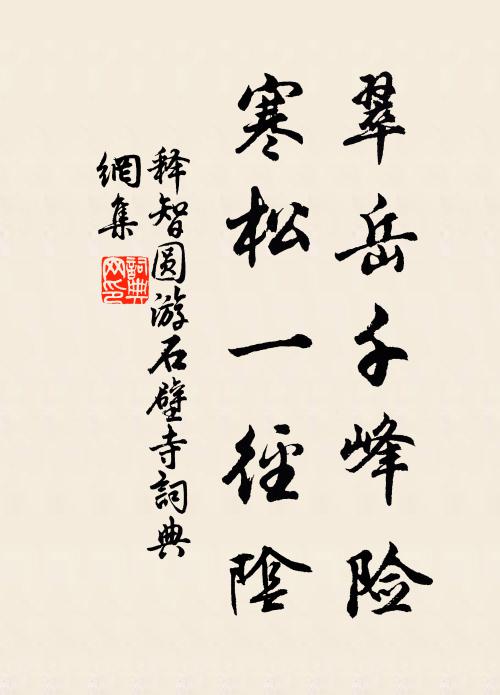 翠岳千峰险
寒松一径陰
释智圆游石壁寺詞典
網集
詞典
网印